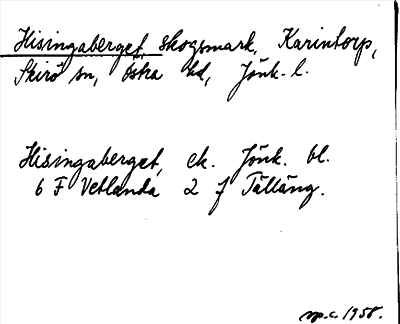 Hisingaberget, skogsmark, Karintorp,
Skirö sn, Östra hd, Jönk. l.
Hisingaberget, ek. Jönk. bl.
6 F Vetlanda 2 f Tälläng.
1958.